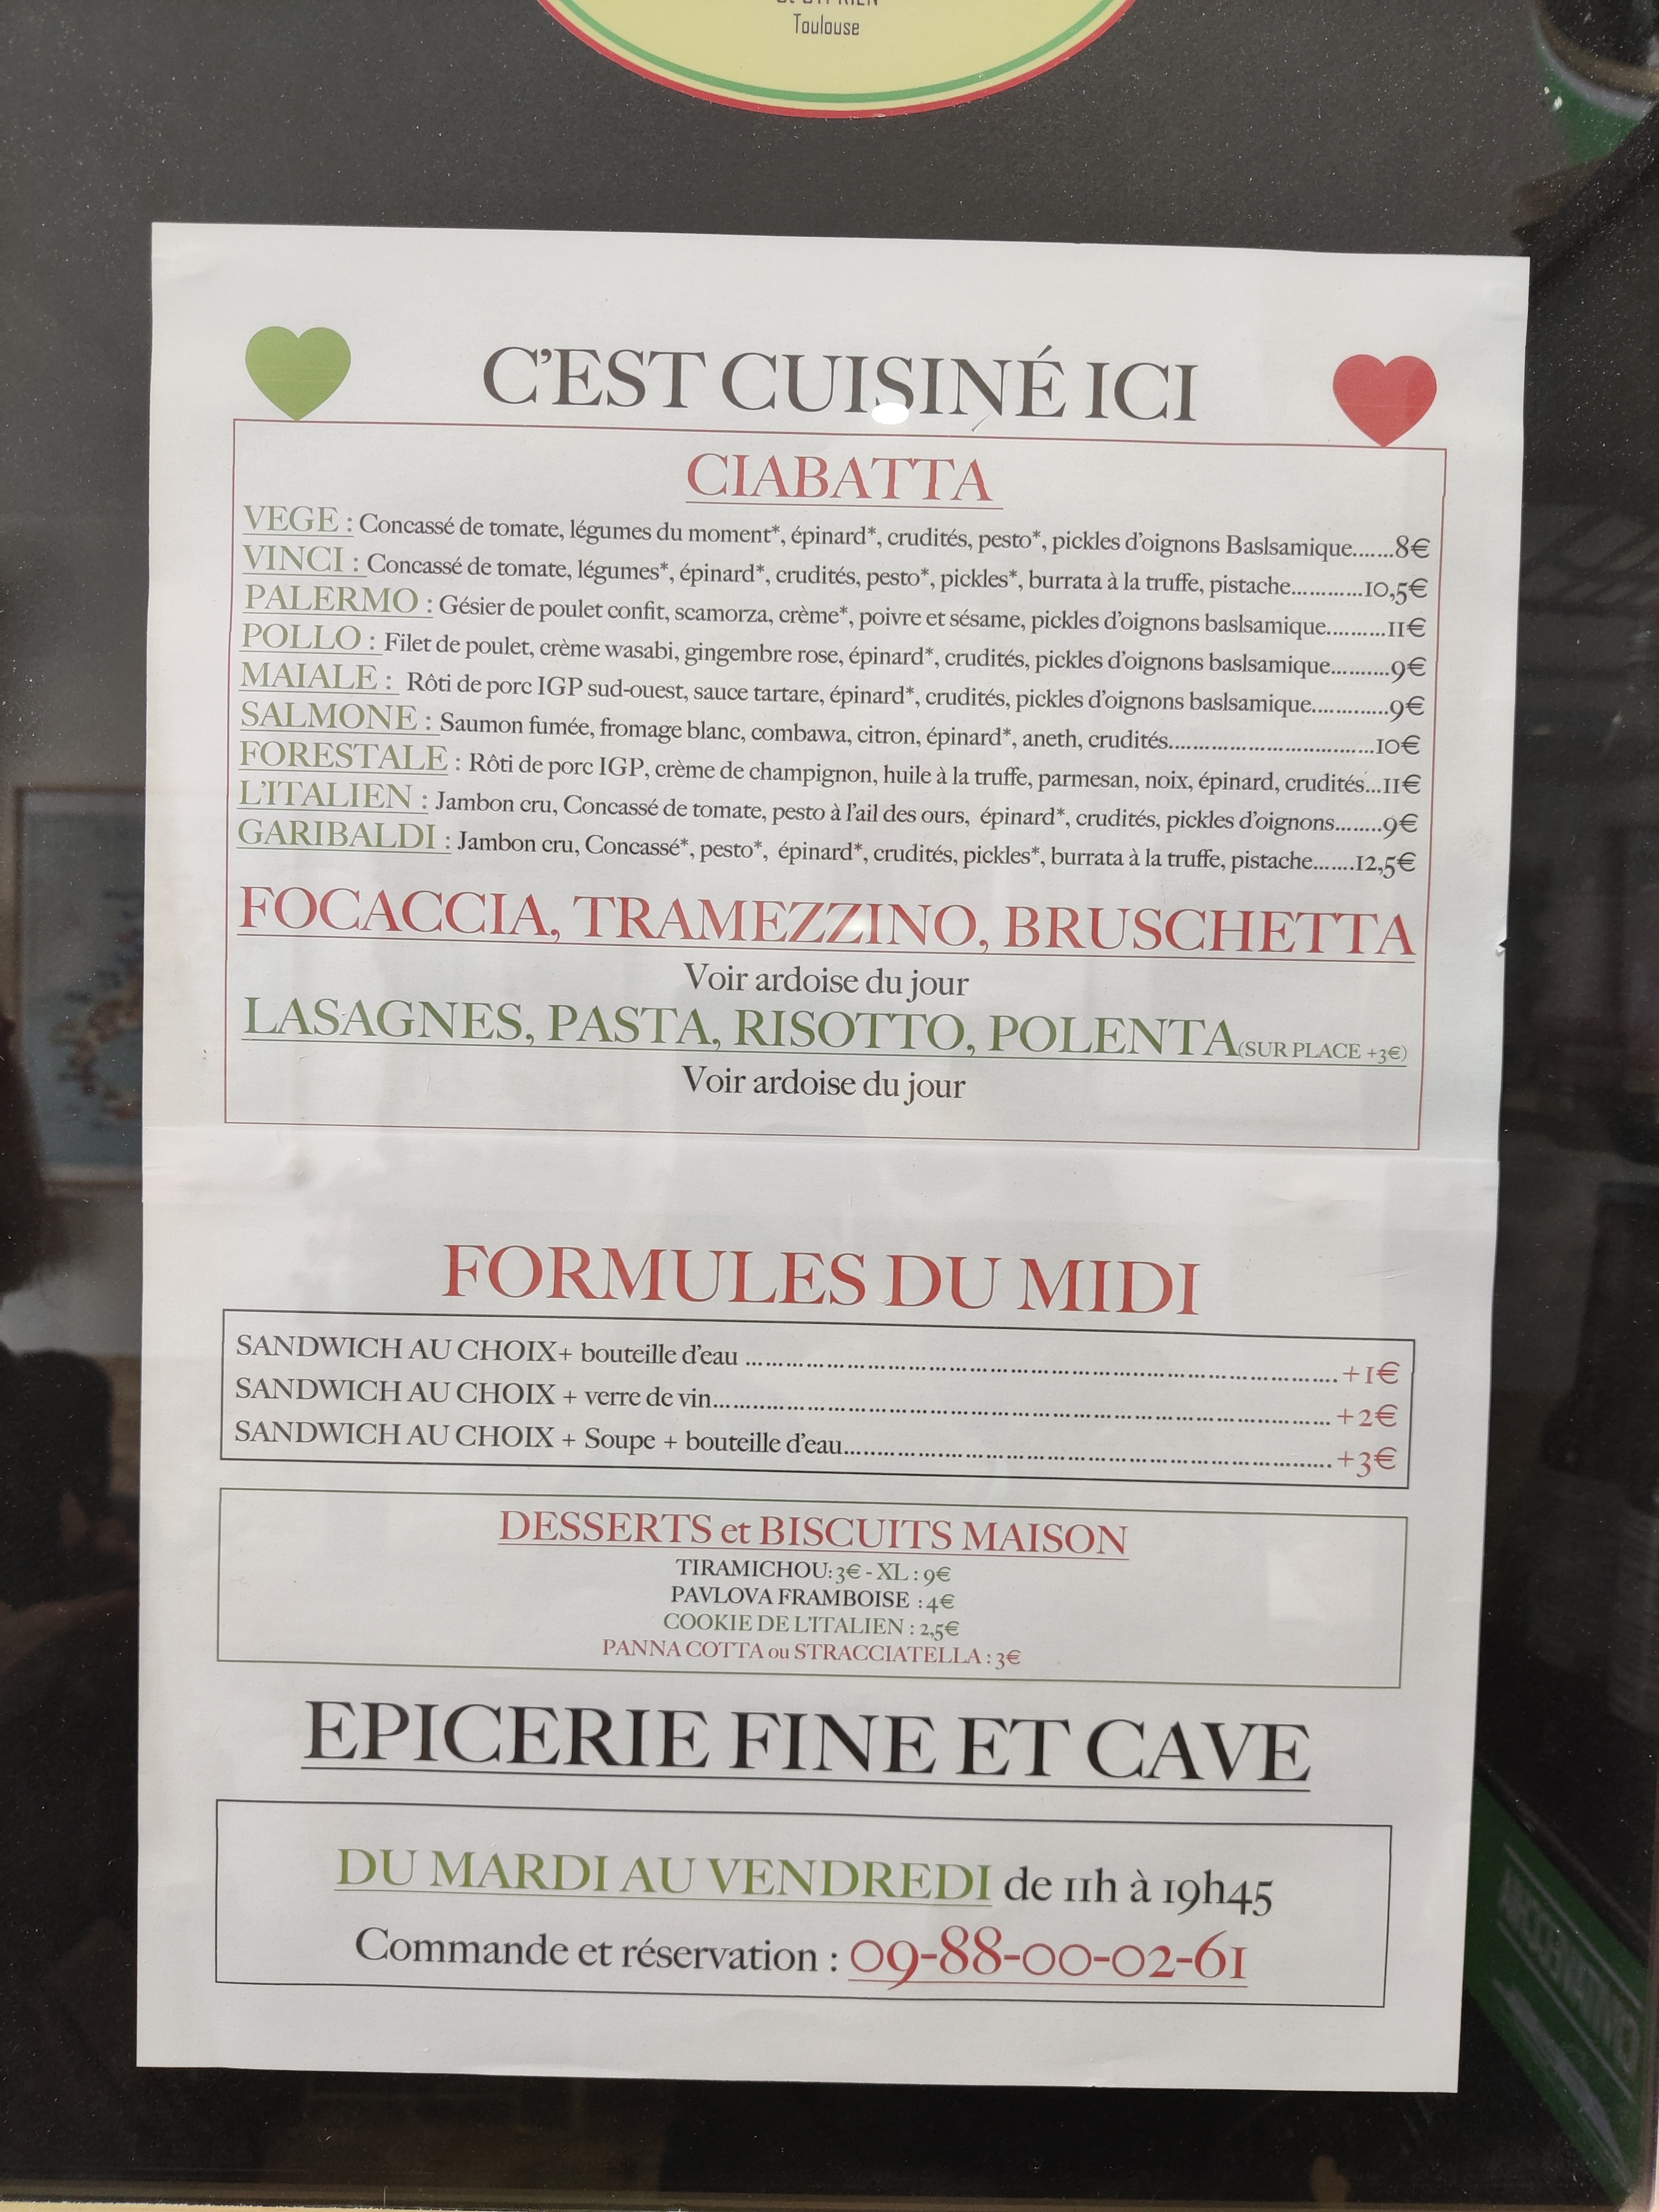 Toulouse
C'EST CUISINÉ ICI
CIABATTA
VEGE : Concassé de tomate, légumes du moment*, épinard*, crudités, pesto*, pickles d'oignons Baslsamique.......8€
VINCI : Concassé de tomate, légumes*, épinard*, crudités, pesto*, pickles*, burrata à la truffe, pistache............10,5€
PALERMO : Gésier de poulet confit, scamorza, crème*, poivre et sésame, pickles d'oignons baslsamique..........11€
POLLO : Filet de poulet, crème wasabi, gingembre rose, épinard*, crudités, pickles d'oignons baslsamique..........9€
MAIALE : Rôti de porc IGP sud-ouest, sauce tartare, épinard*, crudités, pickles d'oignons baslsamique.............9€
SALMONE : Saumon fumée, fromage blanc, combawa, citron, épinard*, aneth, crudités...................................10€
FORESTALE : Rôti de porc IGP, crème de champignon, huile à la truffe, parmesan, noix, épinard, crudités...11€
L'ITALIEN : Jambon cru, Concassé de tomate, pesto à l'ail des ours, épinard*, crudités, pickles d'oignons........9€
GARIBALDI : Jambon cru, Concassé*, pesto*, épinard*, crudités, pickles*, burrata à la truffe, pistache.......12,5€
FOCACCIA, TRAMEZZINO, BRUSCHETTA
Voir ardoise du jour
LASAGNES, PASTA, RISOTTO, POLENTA(SUR PLACE +3€)
Voir ardoise du jour
FORMULES DU MIDI
SANDWICH AU CHOIX+ bouteille d'eau ..........................................................................+1€
SANDWICH AU CHOIX + verre de vin..............................................................................+2€
SANDWICH AU CHOIX + Soupe + bouteille d'eau.............................................................+3€
DESSERTS et BISCUITS MAISON
TIRAMICHOU: 3€ - XL : 9€
PAVLOVA FRAMBOISE : 4€
COOKIE DE L'ITALIEN : 2,5€
PANNA COTTA ou STRACCIATELLA : 3€
EPICERIE FINE ET CAVE
DU MARDI AU VENDREDI de 11h à 19h45
Commande et réservation : 09-88-00-02-61